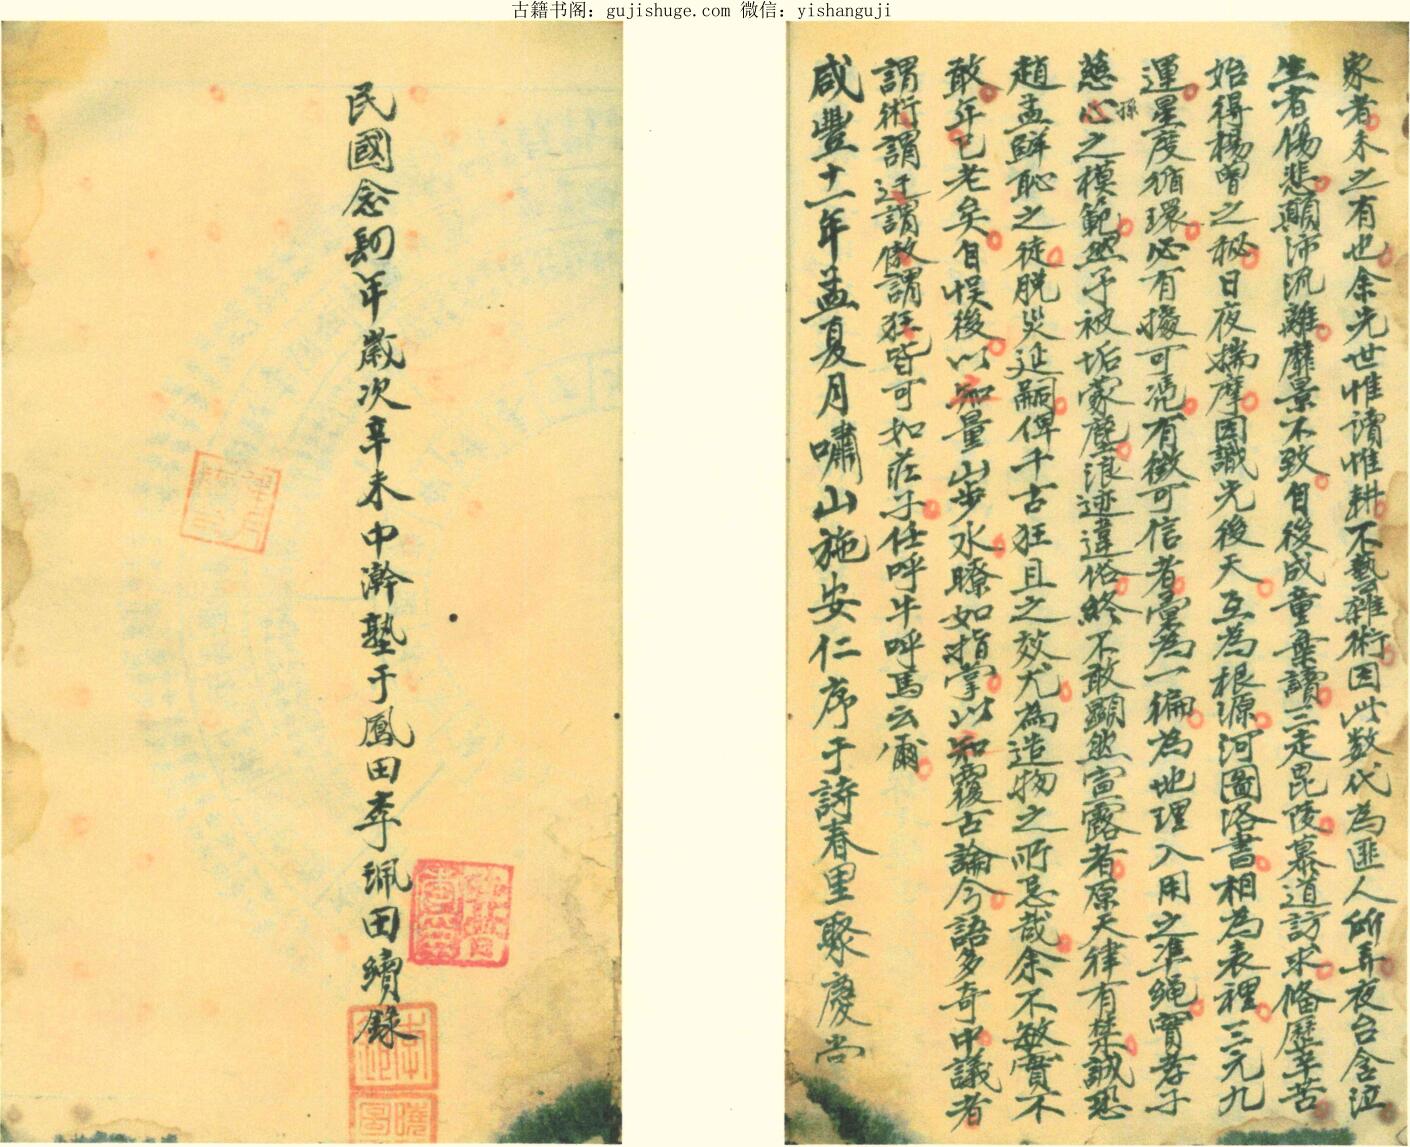 古籍书阁：gujishuge.com 微信：yishanguji
家者未之有也余先世惟讀惟耕不藝雜術因此数代為匪人所弄夜台含泣
生者傷悲顛沛流離靡景不致自後成童棄讀三走毘陵慕道訪求俻歷辛苦
始得楊曾之秘日夜揣摩因識先後天互為根源河圖洛書相為表裡三元九
運星度循環必有據可凴有徵可信者彙為一編為地理入用之準繩實孝子
孫
慈心之模範然予被垢蒙塵浪迹違俗終不敢顯然宣露者原天律有禁誠恐
趙孟鮮恥之徒脱災延嗣俾千古狂且之效尤為造物之所忌哉余不敏實不
敢年已老矣自悞後以知量山步水瞭如指掌以知覆古論今語多奇中議者
謂術謂迂謂傲謂狂皆可如莊子任呼牛呼馬云爾
咸豐十一年孟夏月嘯山施安仁序于詩春里聚慶堂
民國念肆年歲次辛未中澣塾于鳳田李珮田續錄